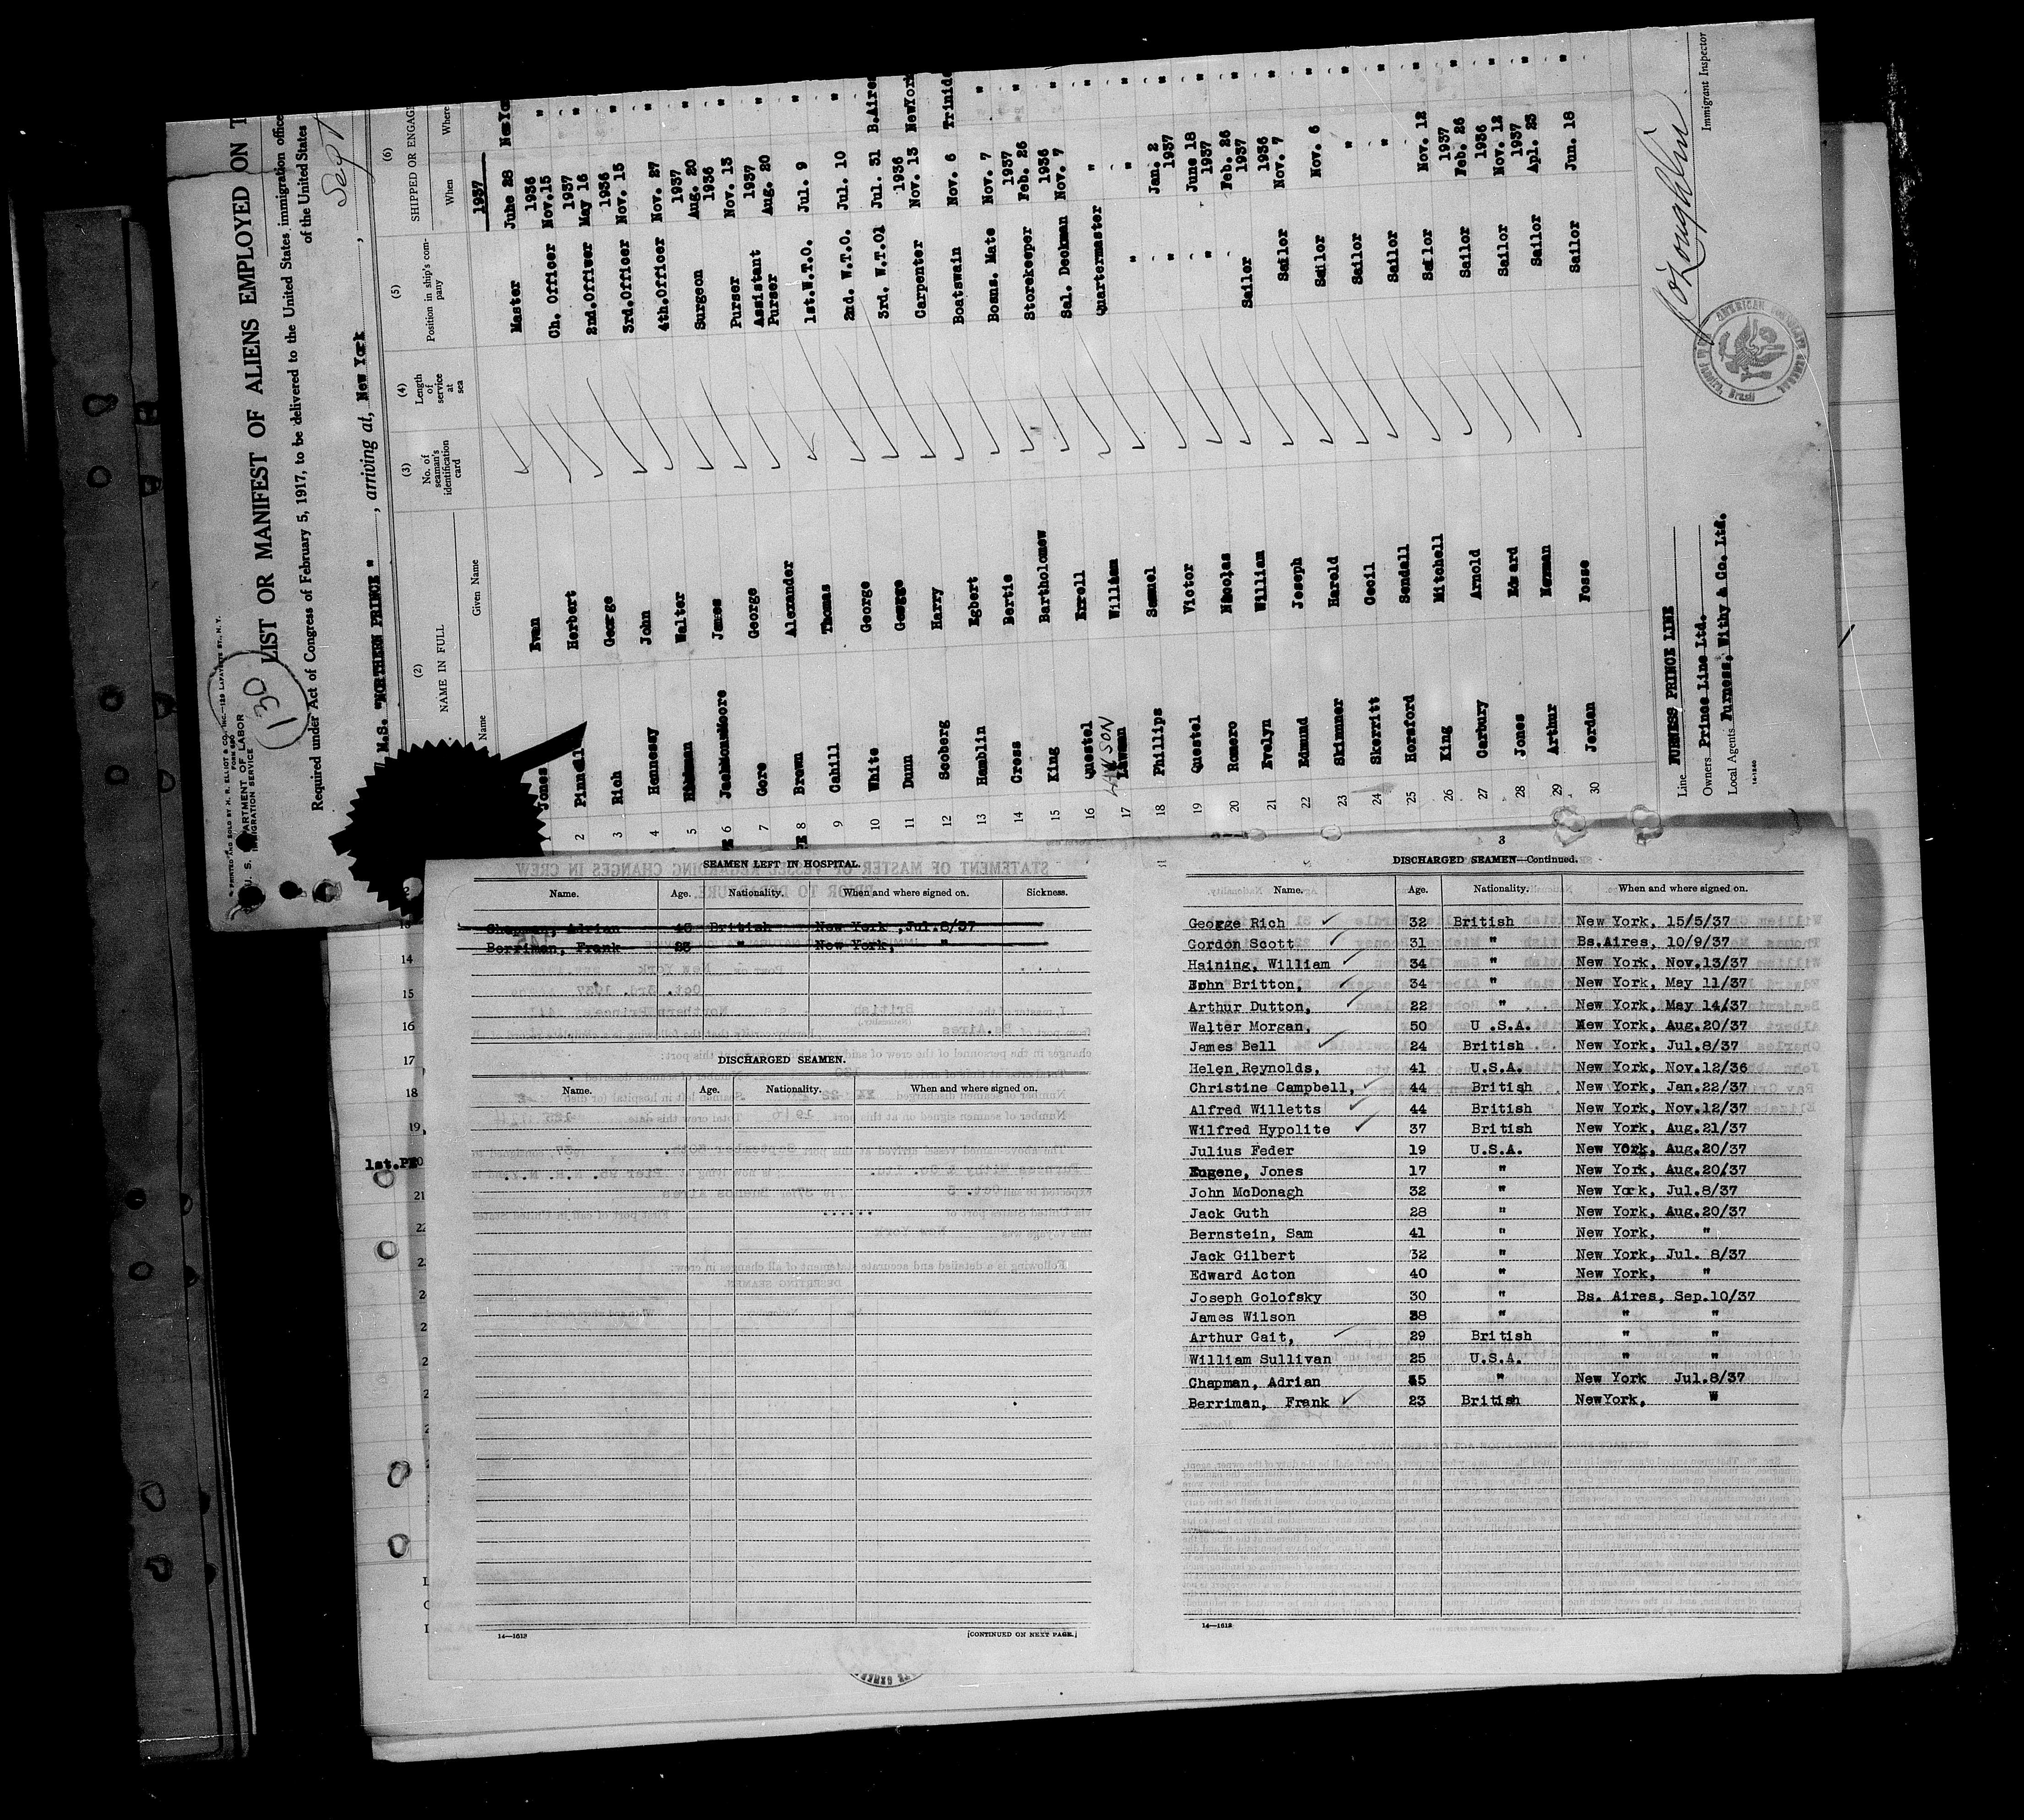 PRINTED AND SOLD BY M. R. ELLIOT & CO., INC.—129 LAFAYETTE ST., N. Y.
FORM 680
U. S. DEPARTMENT OF LABOR
IMMIGRATION SERVICE
130
LIST OR MANIFEST OF ALIENS EMPLOYED ON T
Required under Act of Congress of February 5, 1917, to be delivered to the United States immigration office
of the United States
M.S. "NORTHERN PRINCE", arriving at, New York, Sept
(2) NAME IN FULL
Name Given Name
(3) No. of seaman's identification card
(4) Length of service at sea
(5) Position in ship's company
(6) SHIPPED OR ENGAGE
When Where
1937
1 Jones Evan Master June 28 NewYo
2 Pinnell Herbert Ch. Officer 1936 Nov.15 "
3 Rich George 2nd.Officer 1937 May 16 "
4 Hennessy John 3rd.Officer 1936 Nov. 15 "
5 Walter 4th.Officer Nov. 27 "
6 Moore James Surgeon 1937 Aug. 20 "
7 Gore George Purser 1936 Nov. 13 "
8 Brown Alexander Assistant Purser 1937 Aug. 20 "
9 Cahill Thomas 1st.W.T.O. Jul. 9 "
10 White George 2nd. W.T.O. Jul. 10 "
11 Dunn George 3rd. W.T.O1 Jul. 31 B.Aire
12 Seoberg Harry Carpenter 1936 Nov. 13 NewYork
13 Hamblin Egbert Boatswain Nov. 6 Trinida
14 Cross Bertie Boans. Mate Nov. 7 "
15 King Bartholomew Storekeeper 1937 Feb. 26 "
16 Questel Errell Sal. Deckman 1936 Nov. 7 "
17 LAWSON William Quartermaster " "
18 Phillips Samuel " " "
19 Questel Victor " Jan. 2 1937 "
20 Romero Nicolas " June 18 1937 "
21 Evelyn William Sailer Feb. 26 1937 "
22 Edmund Joseph Sailor 1936 Nov. 7 "
23 Skimmer Harold Sailor Nov. 6 "
24 Skerritt Cecil Sailor " "
25 Horsford Sendall Sailor " "
26 King Mitchell Sailor Nov. 12 "
27 Carbury Arnold Sailor 1937 Feb. 26 "
28 Jones Edward Sailor 1936 Nov. 12 "
29 Arthur Norman Sailor 1937 Apl. 23 "
30 Jordan Fosse Sailor Jun. 18 "
Line FURNESS PRINCE LINE
Owners Prince Line Ltd.
Local Agents Furness, Withy & Co. Ltd.
14-1240
Immigrant Inspector
AMERICAN CONSULATE GENERAL
Brasil
13
14
15
16
17
18
19
1st.PE 20
21
SEAMEN LEFT IN HOSPITAL.
Name. Age. Nationality. When and where signed on. Sickness.
Chapman, Adrian 45 British New York, Jul.8/37
Berriman, Frank 23 " New York, "
DISCHARGED SEAMEN.
Name. Age. Nationality. When and where signed on.
14—1613
[CONTINUED ON NEXT PAGE.]
3
DISCHARGED SEAMEN—Continued.
Name. Age. Nationality. When and where signed on.
George Rich 32 British New York, 15/5/37
Gordon Scott 31 " Bs.Aires, 10/9/37
Haining, William 34 " New York, Nov.13/37
John Britton, 34 " New York, May 11/37
Arthur Dutton, 22 " New York, May 14/37
Walter Morgan, 50 U.S.A. New York, Aug.20/37
James Bell 24 British New York, Jul.8/37
Helen Reynolds, 41 U.S.A. New York, Nov.12/36
Christine Campbell, 44 British New York, Jan.22/37
Alfred Willetts 44 British New York, Nov.12/37
Wilfred Hypolite 37 British New York, Aug.21/37
Julius Feder 19 U.S.A. New York, Aug.20/37
Eugene, Jones 17 " New York, Aug.20/37
John McDonagh 32 " New York, Jul.8/37
Jack Guth 28 " New York, Aug.20/37
Bernstein, Sam 41 " New York, "
Jack Gilbert 32 " New York, Jul. 8/37
Edward Acton 40 " New York, "
Joseph Golofsky 30 " Bs. Aires, Sep.10/37
James Wilson 38 " " "
Arthur Gait, 29 British " "
William Sullivan 25 U.S.A. " "
Chapman, Adrian 45 " New York Jul.8/37
Berriman, Frank 23 British NewYork, "
14—1613